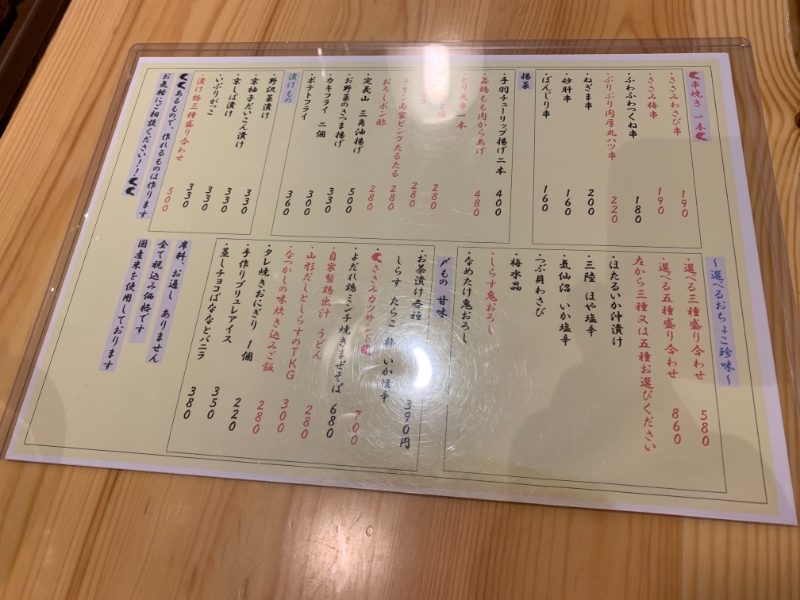 串焼き 一本
・ささみわさび串 190
・ささみ梅串 190
・ふわふわつくね串 180
・ぷりぷり肉厚丸ハツ串 220
・ねぎま串 200
・砂肝串 160
・ぼんじり串 160
揚菜
・手羽チューリップ揚げ二本 400
・若鶏もも肉からあげ 480
一本 280
280
・チキン南蛮ピンツたるたる 280
おろしポン酢 280
・定義山 三角油揚げ 500
・お野菜のさつま揚げ 350
・カキフライ 二個 330
・ポテトフライ 300
360
漬けもの
・野沢菜漬け 330
・京柚子だいこん漬け 330
・京しば漬け 330
・いぶりがっこ 330
・漬け物三種盛り合わせ 500
あるもので、作れるものは作ります
お気軽にご相談ください!!
~選べるおちょこ珍味~
・選べる三種盛り合わせ 580
・選べる五種盛り合わせ 860
左から三種又は五種お選びください
・ほたるいか沖漬け
・三陸 ほや塩辛
・気仙沼 いか塩辛
・つぶ貝わさび
・梅水晶
・しらす鬼おろし
・なめたけ鬼おろし
〆もの 甘味
・お茶漬け各種
しらす たらこ 梅 いか塩辛 390円
・ささみカツサンド 700
・よだれ鶏ミンチ焼きまぜそば 680
・自家製鶏出汁 うどん 280
・山形だしとしらすのTKG 300
・なつかしの味炊き込みご飯 280
・タレ焼きおにぎり 1個 220
・手作りブリュレアイス 350
・蒸しチョコばななとバニラ 380
席料、お通し ありません
全て税込み価格です
国産米を使用しております